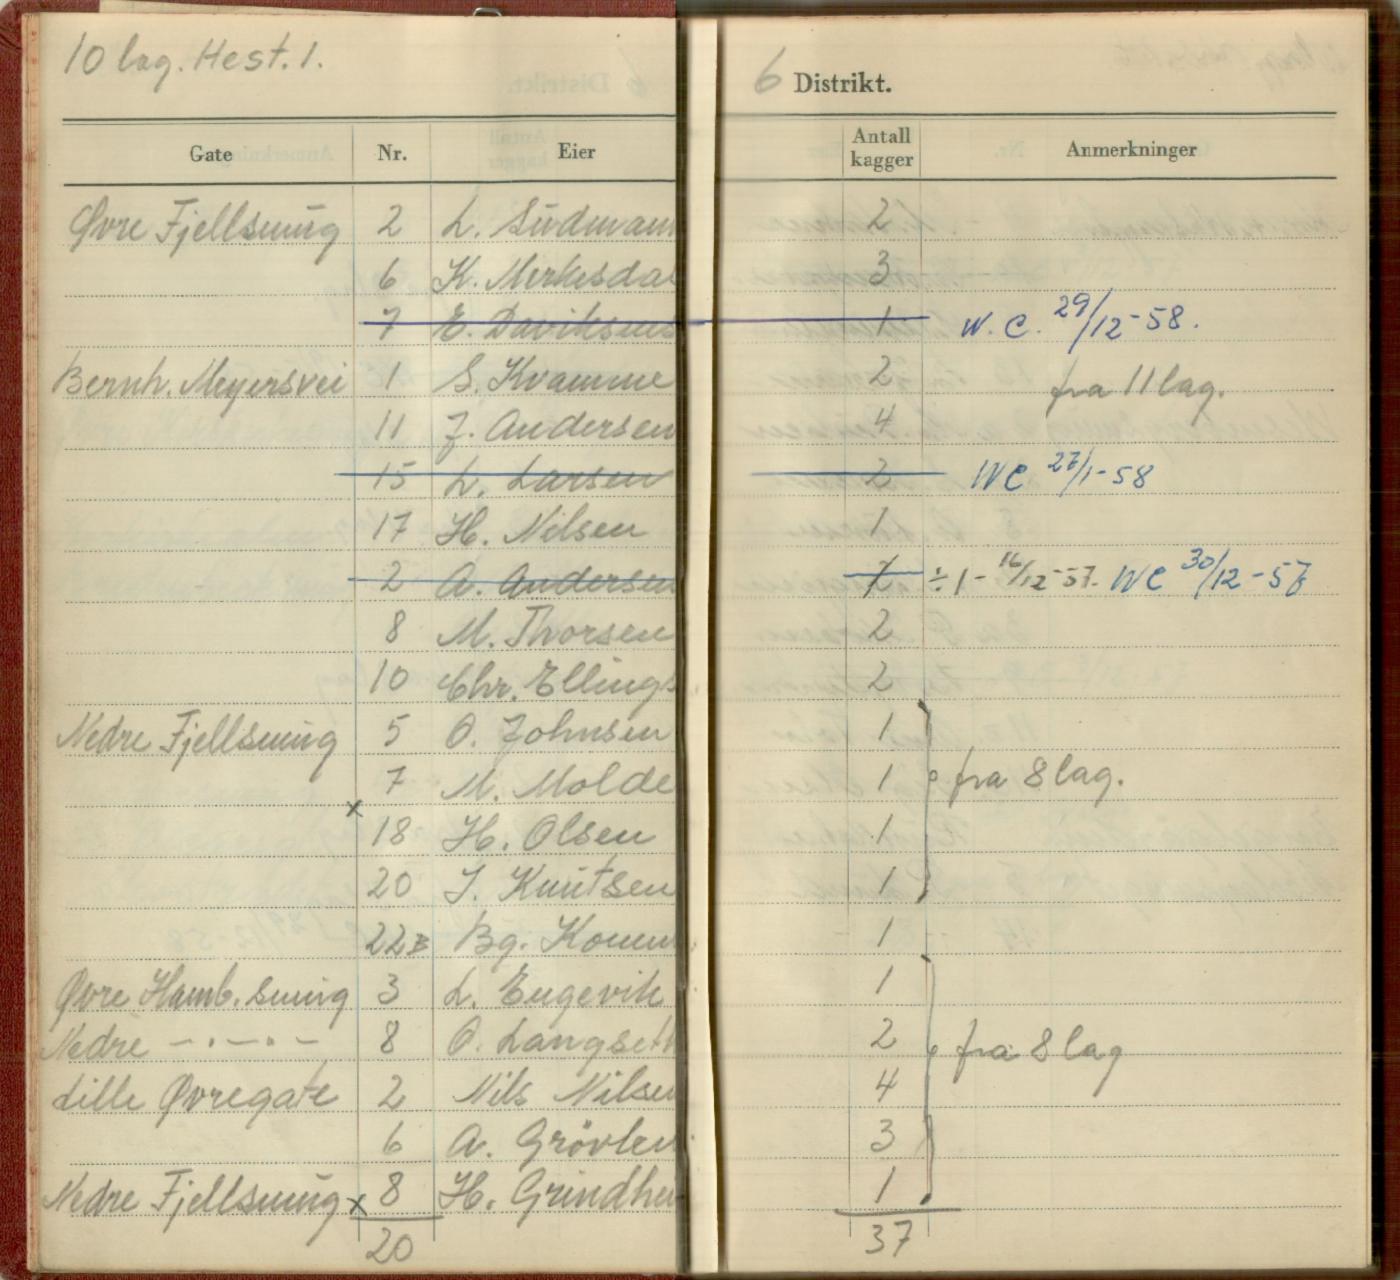 10 lag. Hest. 1.
6 Distrikt.
Gate Nr. Eier Antall kagger Anmerkninger
Øvre Fjellsmüg 2 L. Südmann 2
6 K. Mirkesdal 3
7 E. Daviksens 1 W.C. 29/12-58.
Bernh. Meyersvei 1 S. Kvamme 2 fra 11 lag.
11 J. Andersen 4
15 L. Larsen 2 WC 27/1-58
17 H. Nilsen 1
2 A. Andersen ÷ 1 - 16/12-57. WC 30/12-57
8 M. Thorsen 2
10 Chr. Ellings 2
Nedre Fjellsmüg 5 O. Johnsen 1
7 M. Molde 1 fra 8 lag.
x 18 H. Olsen 1
20 J. Knütsen 1
22B Bg. Komm 1
Øvre Hamb. smüg 3 L. Engevik 1
Nedre -.-.- 8 O. Langseth 2 fra 8 lag
Lille Øvregate 2 Nils Nilsen 4
6 A. Grövlen 3
Nedre Fjellsmüg x 8 H. Grindhei 1
20 37